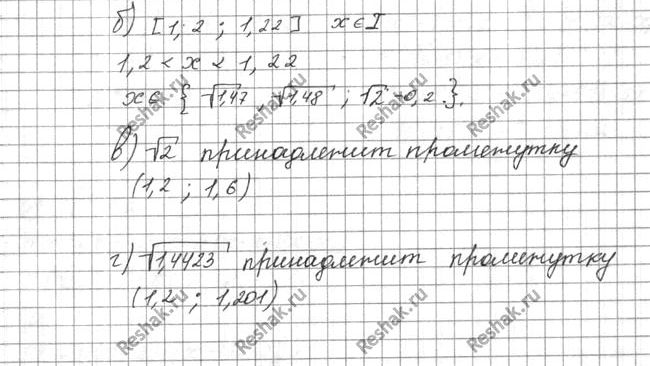 б) [1,2 ; 1,22] x∈I
1,2 < x < 1,22
x∈ { √1,47 , √1,48 ; √2-0,2 }.
в) √2 принадлежит промежутку
(1,2 ; 1,6)
г) √1,4423 принадлежит промежутку
(1,2 ; 1,201)
Reshak.ru
Reshak.ru
Reshak.ru
Reshak.ru
Reshak.ru
Reshak.ru
Reshak.ru
Reshak.ru